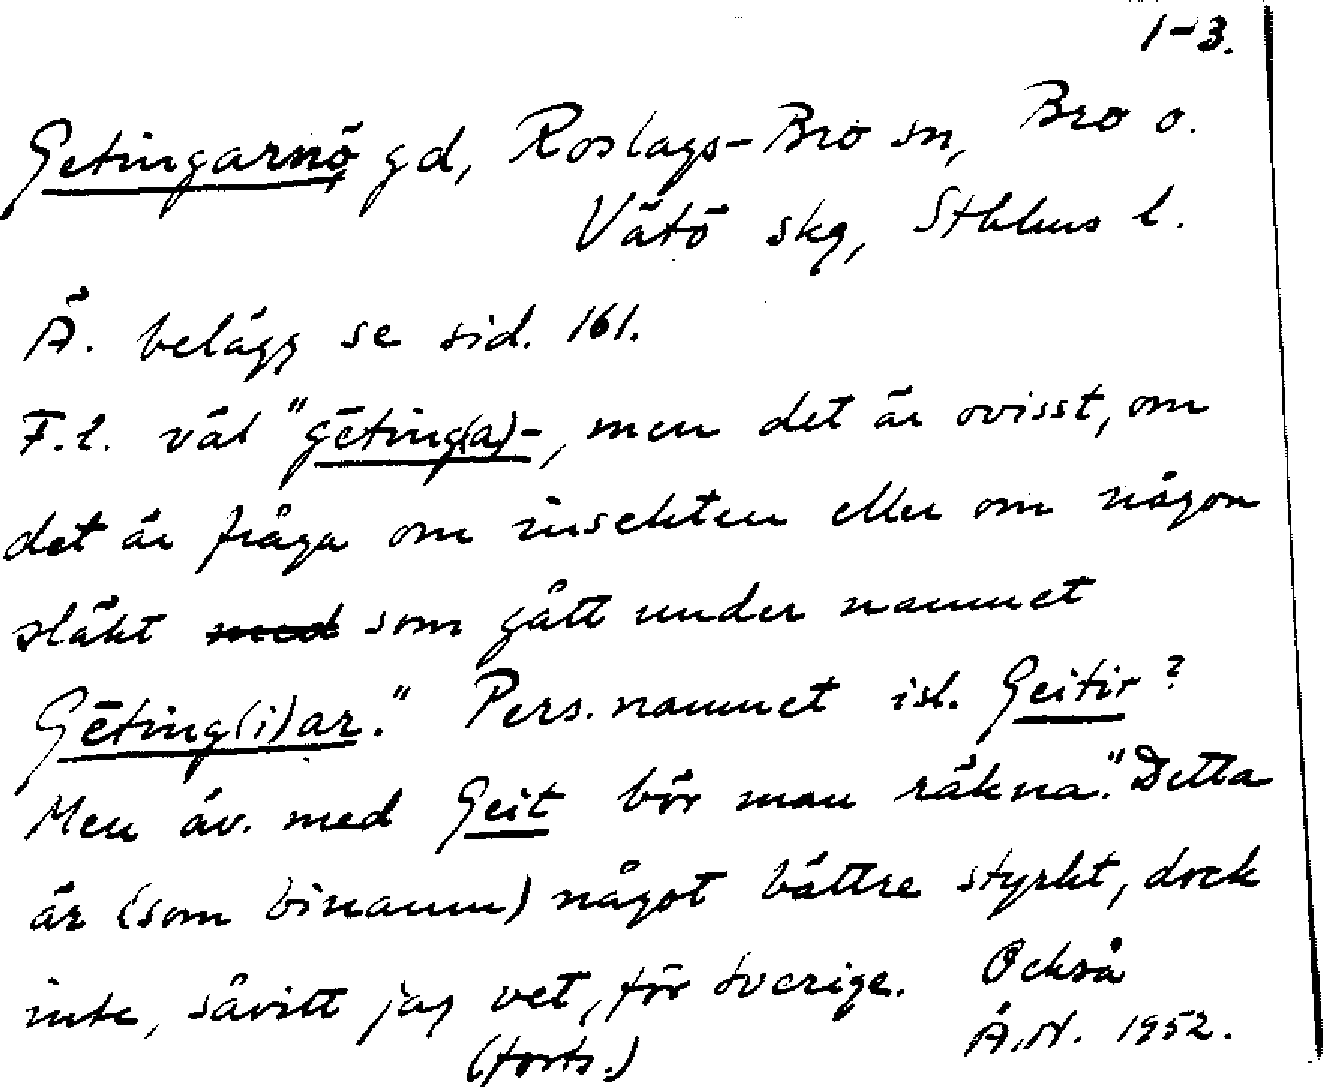 1-3.
Getingarnö gd, Roslags-Bro sn, Bro o.
Vätö skg, Sthlms l.
Ä. belägg se sid. 161.
F.l. väl "gēting(a)-, men det är ovisst, om
det är fråga om insekten eller om någon
släkt med som gått under namnet
Gēting(i)ar." Pers.namnet isl. Geitir?
Men äv. med Geit bör man räkna." Detta
är (som binamn) något bättre styrkt, dock
inte, såvitt jag vet, för Sverige. Också
(forts.)
Ä.N. 1952.